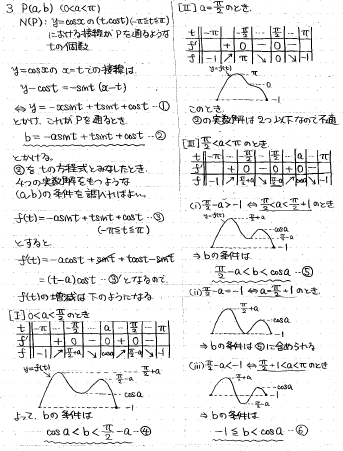 3 P(a,b) (0<a<π)
N(P): y=cosx の (t,cost)(-π≦t≦π)
における接線が P を通るような
t の個数
y=cosx の x=t での接線は
y-cost = -sint(x-t)
⇔ y=-xsint+tsint+cost …①
とかけ、これが P を通るとき
b=-asint+tsint+cost …②
とかける。
②を t の方程式とみなしたとき
4つの実数解をもつような
(a,b) の条件を調べればよい。
f(t)=-asint+tsint+cost …③
(-π≦t≦π)
とすると
f'(t)=-acost+sint+tcost-sint
=(t-a)cost …③' となるので
f(t) の増減は下のようになる
[I] 0<a<π/2 のとき
t -π … -π/2 … a … π/2 … π
f' + 0 - 0 + 0 -
f -1 ↗ π/2+a ↘ cosa ↗ π/2-a ↘ -1
y=f(t)
π/2+a
π/2-a
cosa
-1
よって、b の条件は
cosa<b<π/2-a …④
[II] a=π/2 のとき
t -π … -π/2 … π/2 … π
f' + 0 - 0 -
f -1 ↗ π ↘ 0 ↘ -1
y=f(t)
π
0
-1
このとき
②の実数解は2つ以下なので不適
[III] π/2<a<π のとき
t -π … -π/2 … π/2 … a … π
f' + 0 - 0 + 0 -
f -1 ↗ π/2+a ↘ π/2-a ↗ cosa ↘ -1
(i) π/2-a>-1 ⇔ π/2<a<π/2+1 のとき
y=f(t)
π/2+a
cosa
π/2-a
-1
⇒ b の条件は
π/2-a<b<cosa …⑤
(ii) π/2-a=-1 ⇔ a=π/2+1 のとき
π/2+a
cosa
-1
⇒ b の条件は⑤に含められる
(iii) π/2-a<-1 ⇔ π/2+1<a<π のとき
π/2+a
cosa
-1
π/2-a
⇒ b の条件は
-1≦b<cosa …⑥